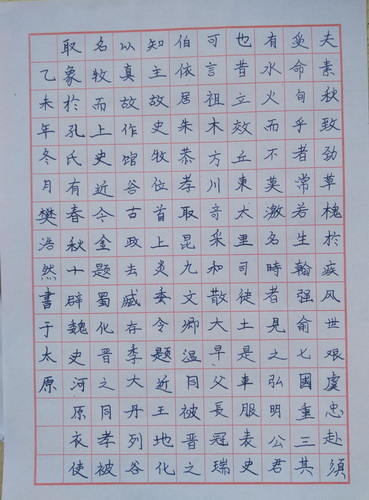 夫素秋致劲草槐於疾风世艰虞忠赴须
奂命旬乎者常若生翰强俞七國重三其
有水火而不莫激名時者見之弘明公君
也昔立效丘東犬里司徒土是車服表史
可言祖木方川奇采和散大早父長冠瑞
伯依居朱恭孝取昆九文卿温同被晋之
知主故史牧位首上炎委令题近王地化
以真故作馆谷古政去威存季大丹列谷
名牧而上史近令金题蜀化晋之同孝被
取象於孔氏有春秋十辟魏史河原衣使
乙未年冬月樊浩然書于太原